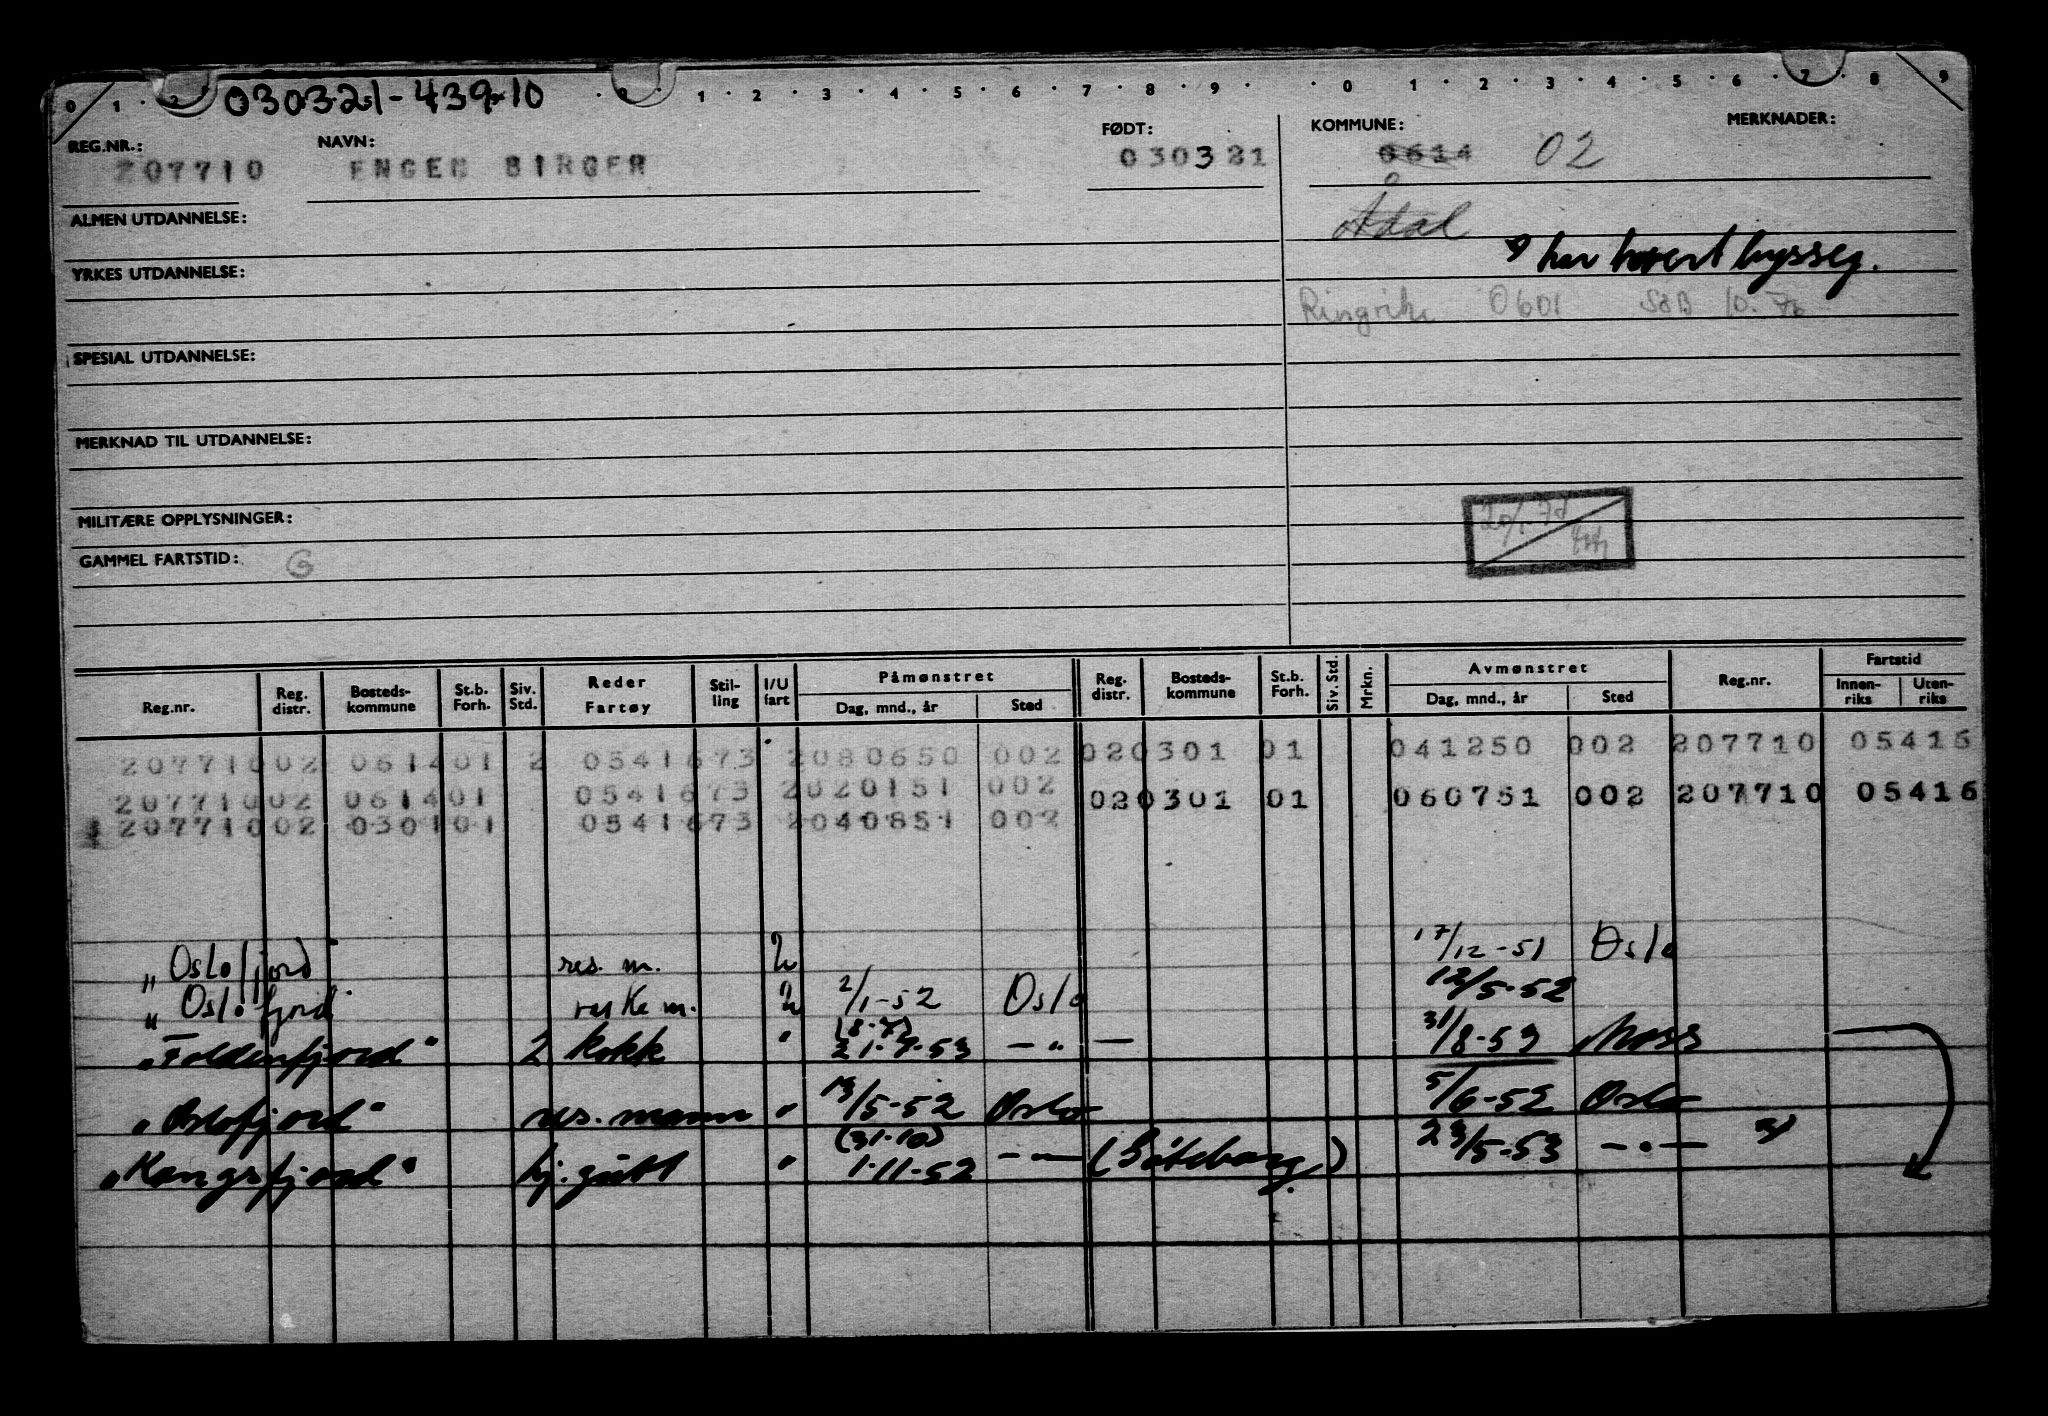 030321-43910
REG.NR.: NAVN: FØDT: KOMMUNE: MERKNADER:
207710 ENGEN BIRGER 030321 0614 02
ALMEN UTDANNELSE: Ådal
YRKES UTDANNELSE: har hvert hysseg.
Ringrike 0601 SØB 10.76
SPESIAL UTDANNELSE:
MERKNAD TIL UTDANNELSE:
MILITÆRE OPPLYSNINGER:
GAMMEL FARTSTID: G
Reg.nr. Reg. distr. Bosteds-kommune St.b. Forh. Siv. Std. Reder Fartøy Stil-ling I/U fart Påmønstret Dag, mnd., år Sted Reg. distr. Bosteds-kommune St.b. Forh. Siv. Std. Mrkn. Avmønstret Dag, mnd., år Sted Reg.nr. Fartstid Innen-riks Uten-riks
207710 02 0614 01 2 0541673 2 080650 002 02 0301 01 041250 002 207710 05416
207710 02 0614 01 0541673 2 020151 002 02 0301 01 060751 002 207710 05416
207710 02 0301 01 0541673 2 040851 002
" Oslofjord res. m. 17/12-51 Oslo
" Oslofjord m. 2/1-52 Oslo 12/5-52
"Foldenfjord" 2 kokk " 21-7-53 -"- 31/8-53 Moss
"Oslofjord" res. mann " 13/5-52 Oslo 5/6-52 Oslo
"Kongsfjord" hj. gutt " (31-10) 1-11-52 -"- (Göteborg) 23/5-53 -"-